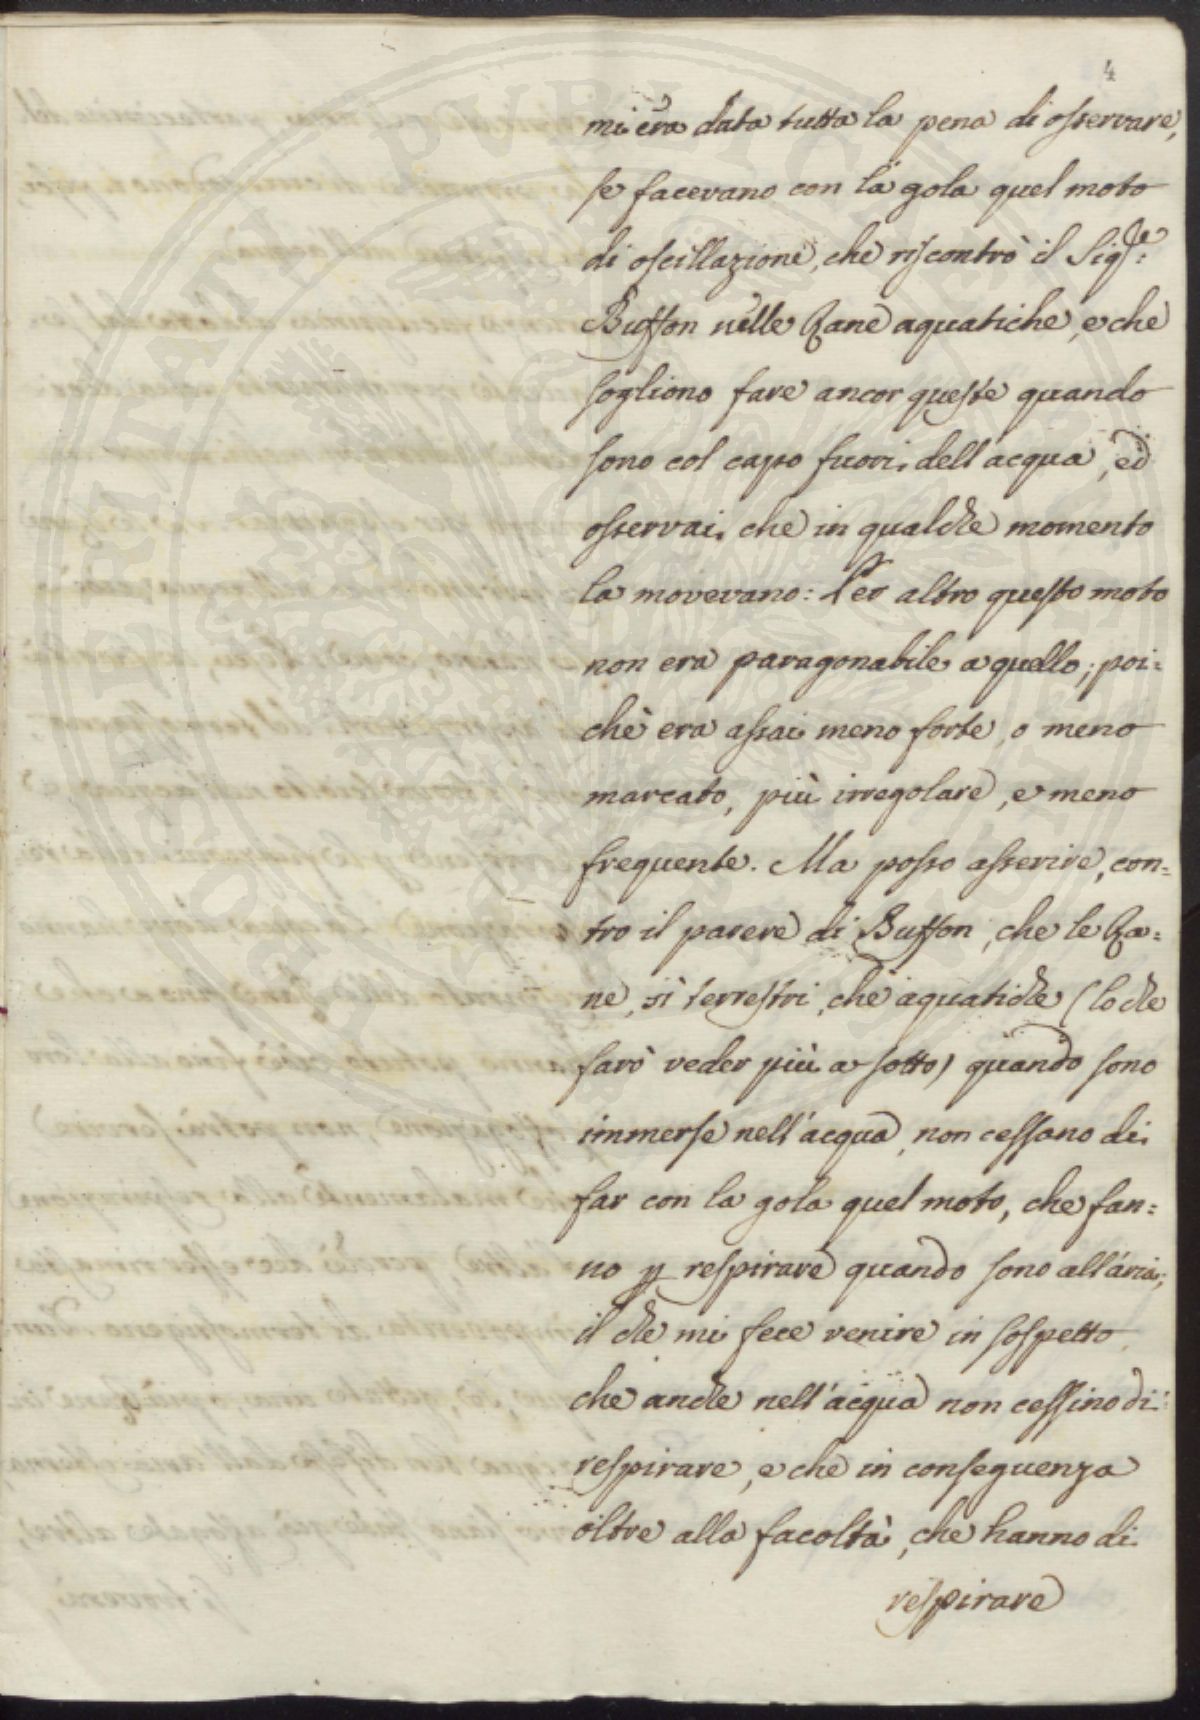 4
mi era data tutta la pena di osservare,
se facevano con la gola quel moto
di oscillazione, che riscontrò il Sigr.
Buffon nelle Rane aquatiche, e che
sogliono fare ancor queste quando
sono col capo fuori dell'acqua, ed
osservai, che in qualche momento
la movevano: Per altro questo moto
non era paragonabile a quello; poi=
chè era assai meno forte, o meno
marcato, più irregolare, e meno
frequente. Ma posso asserire, con=
tro il parere di Buffon, che le Ra=
ne, sì terrestri, che aquatiche (lo che
farò veder più a sotto) quando sono
immerse nell'acqua, non cessano di
far con la gola quel moto, che fan=
no p respirare quando sono all'aria;
il che mi fece venire in sospetto,
che anche nell'acqua non cessino di
respirare, e che in conseguenza
oltre alla facoltà, che hanno di
respirare